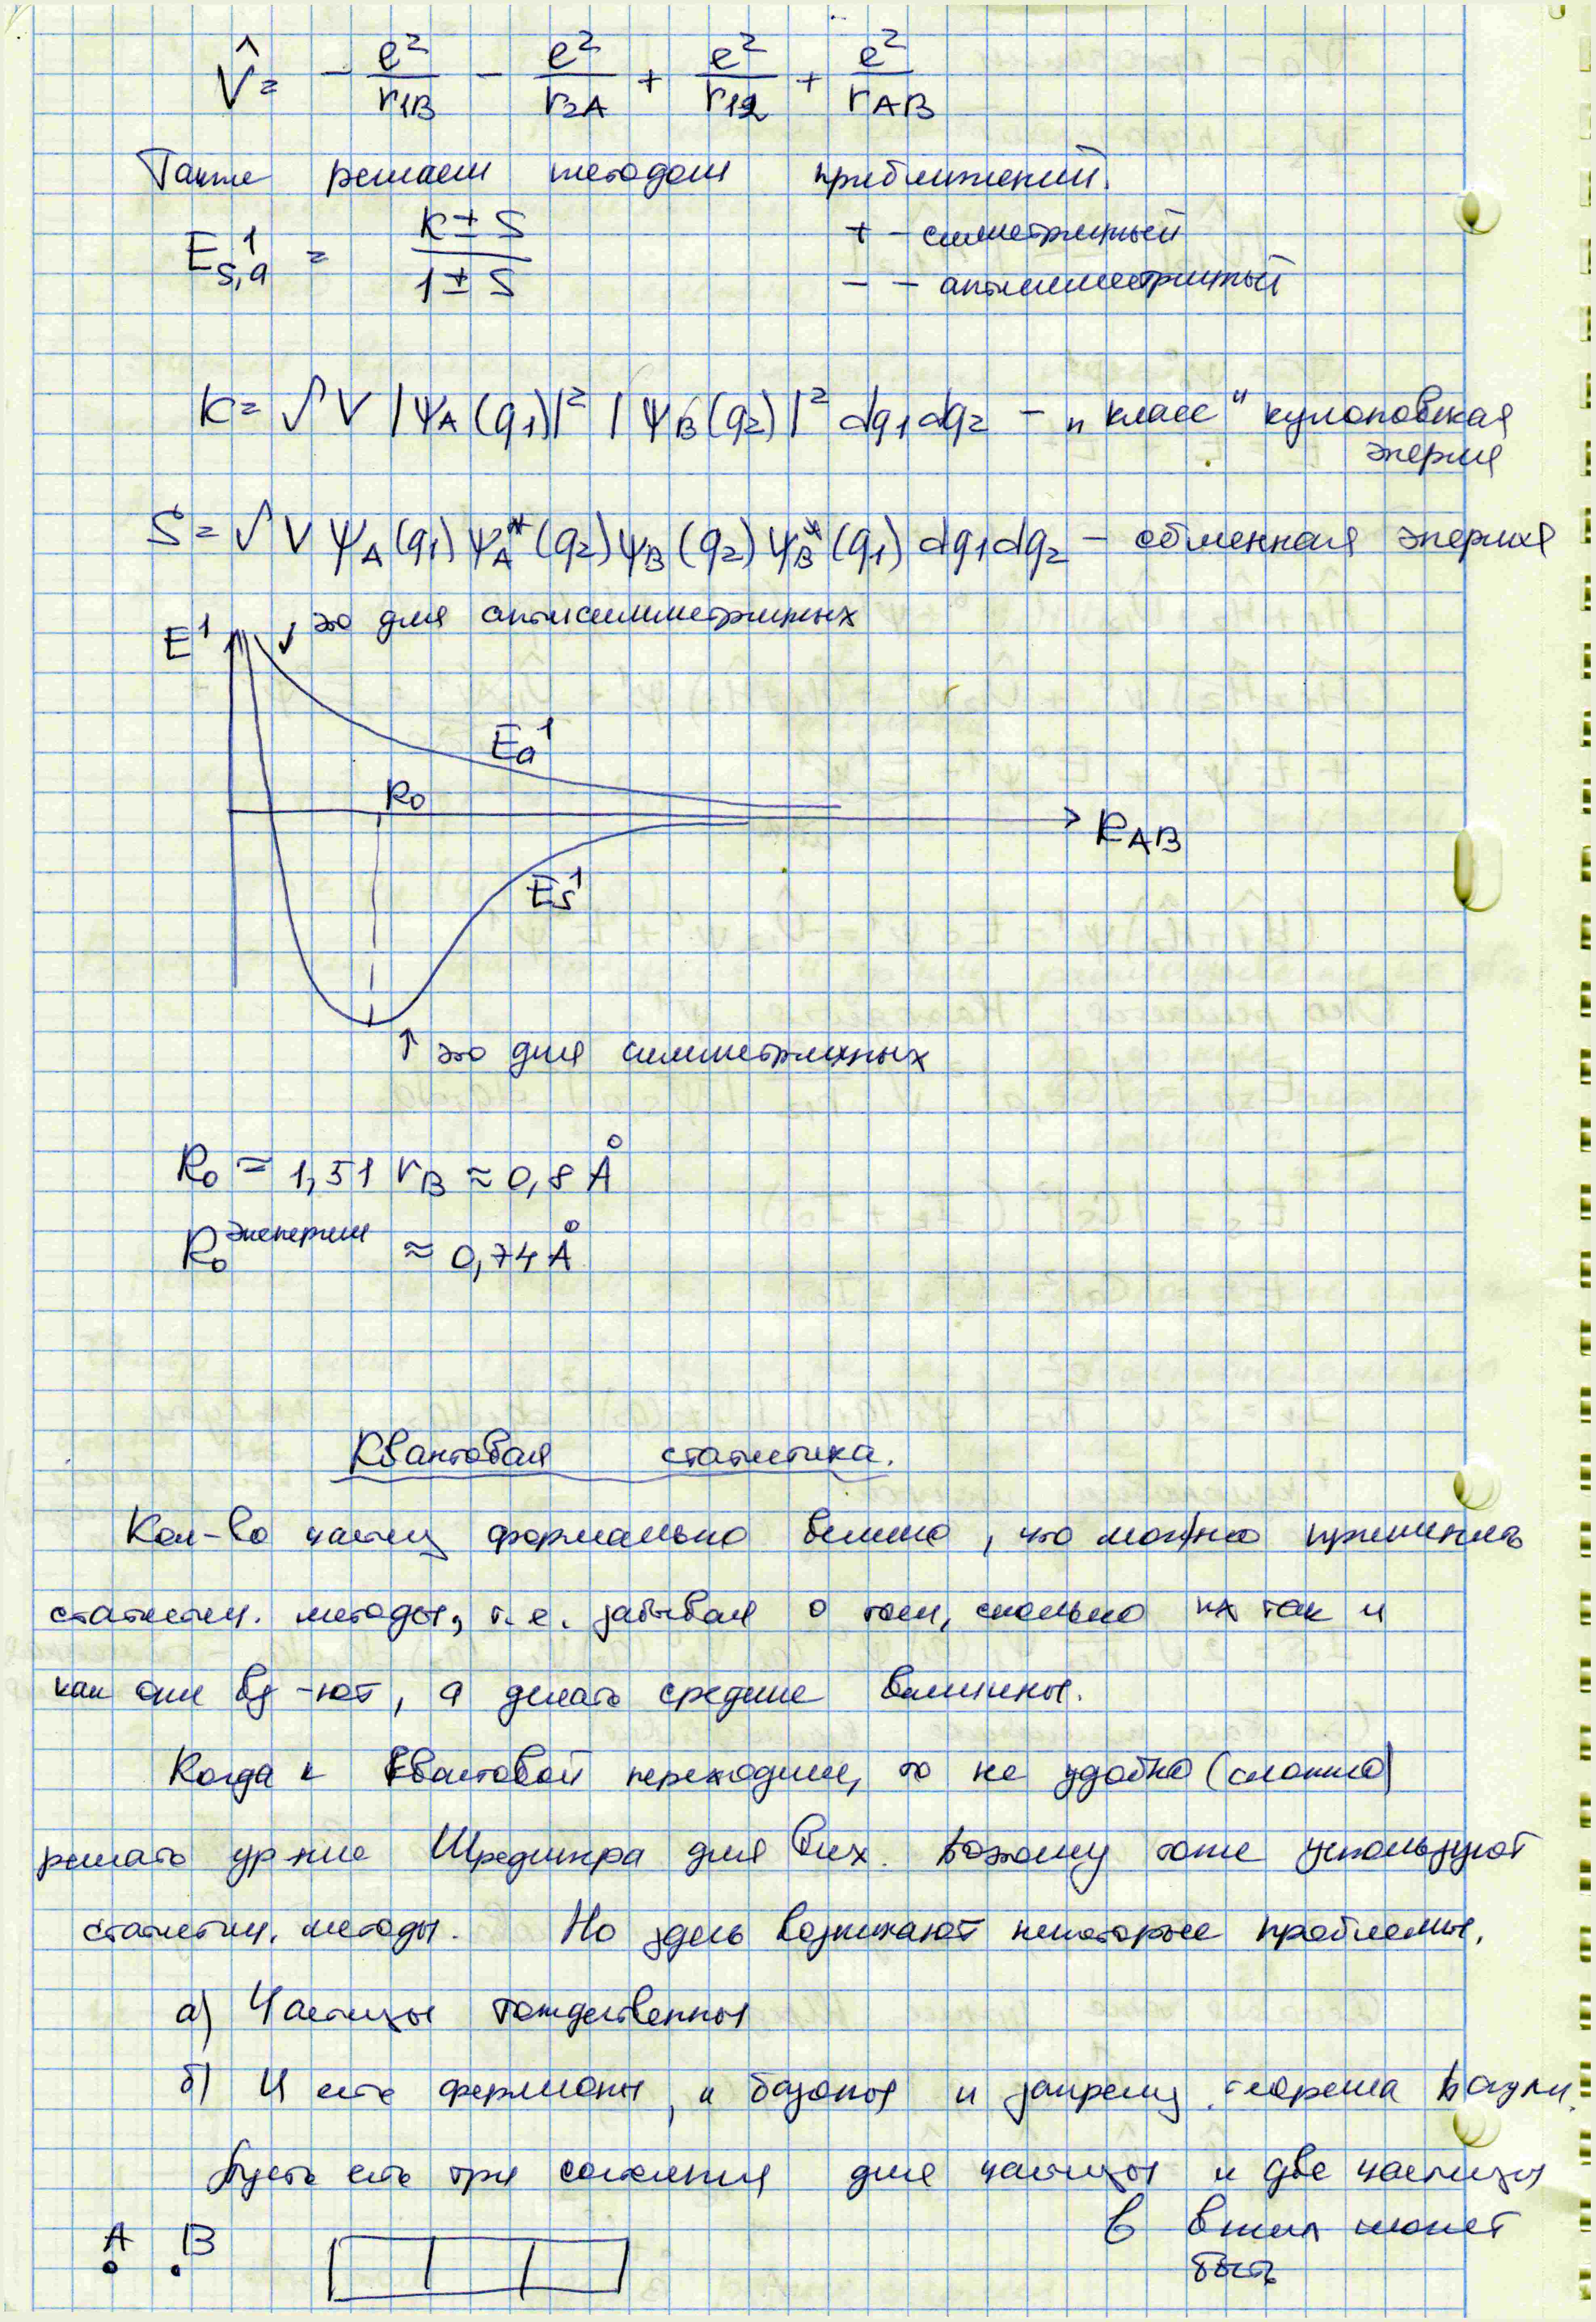 V̂ = - e²/r1B - e²/r2A + e²/r12 + e²/rAB
Также решаем методом приближений.
E¹s,a = (K ± S)/(1 ± S)
+ - симметричный
- - антисимметричный
K = ∫ V |ψA(q1)|² |ψB(q2)|² dq1dq2 - „класс" кулоновская
энергия
S = ∫ V ψA(q1) ψA*(q2) ψB(q2) ψB*(q1) dq1dq2 - обменная энергия
E¹ ↓ это для антисимметричных
Ea¹
R0
RAB
Es¹
↑ это для симметричных
R0 = 1,51 rB ≈ 0,8 Å
R0 эксперим ≈ 0,74 Å
Квантовая статистика.
Кол-во частиц формально велико, что можно применить
статистич. методы, т.е. забывая о том, сколько их так и
как они вз-ют, а делать средние величины.
Когда к квантовой переходим, то не удобно (сложно)
решать ур-ние Шредингра для них. Поэтому тоже используют
статистич. методы. Но здесь возникают некоторые проблемы.
а) Частицы тождественны
б) И есть фермионы, и бозоны и запрещ. теорема Паули.
Пусть есть три состояния для частицы и две частицы
A B
может
быть